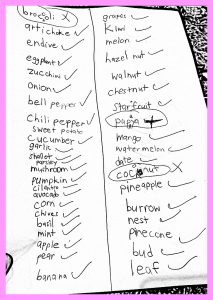 broccoli X
artichoke ✓
endive ✓
eggplant ✓
zucchini ✓
onion ✓
bell pepper ✓
chili pepper ✓
sweet potato
cucumber ✓
garlic
shallot ✓
parsley
mushroom ✓
pumpkin ✓
cilantro
avocado ✓
corn ✓
chives ✓
basil ✓
mint ✓
apple ✓
pear ✓
banana ✓
grapes ✓
kiwi ✓
melon ✓
hazel nut ✓
walnut ✓
chestnut ✓
starfruit ✓
mango ✓
watermelon ✓
date ✓
coconut X
pineapple ✓
burrow ✓
nest ✓
pinecone ✓
bud ✓
leaf ✓